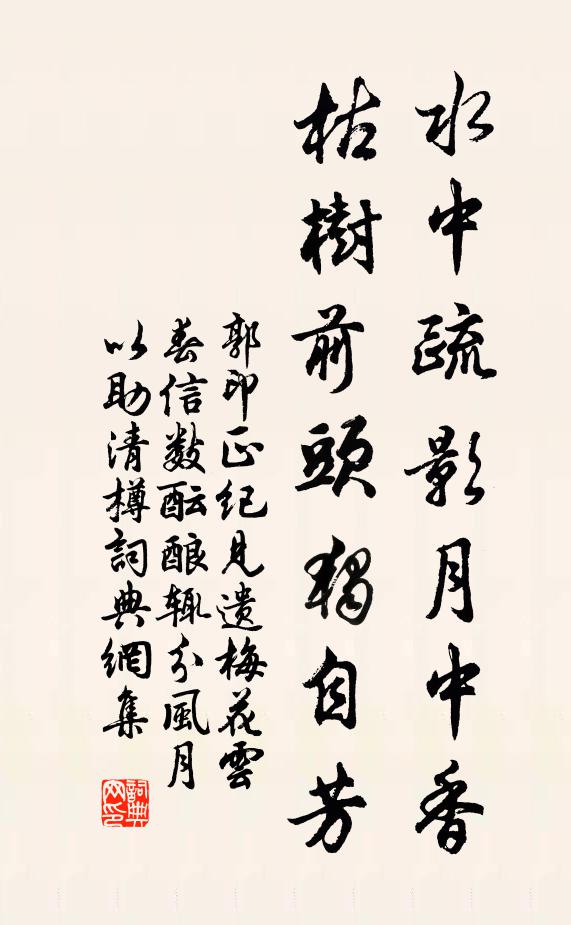 水中疏影月中香
枯樹前頭獨自芳
郭印正紀見遺梅花雲
春信數酝酿辄分風月
以助清樽詞典網集
詞典
网印